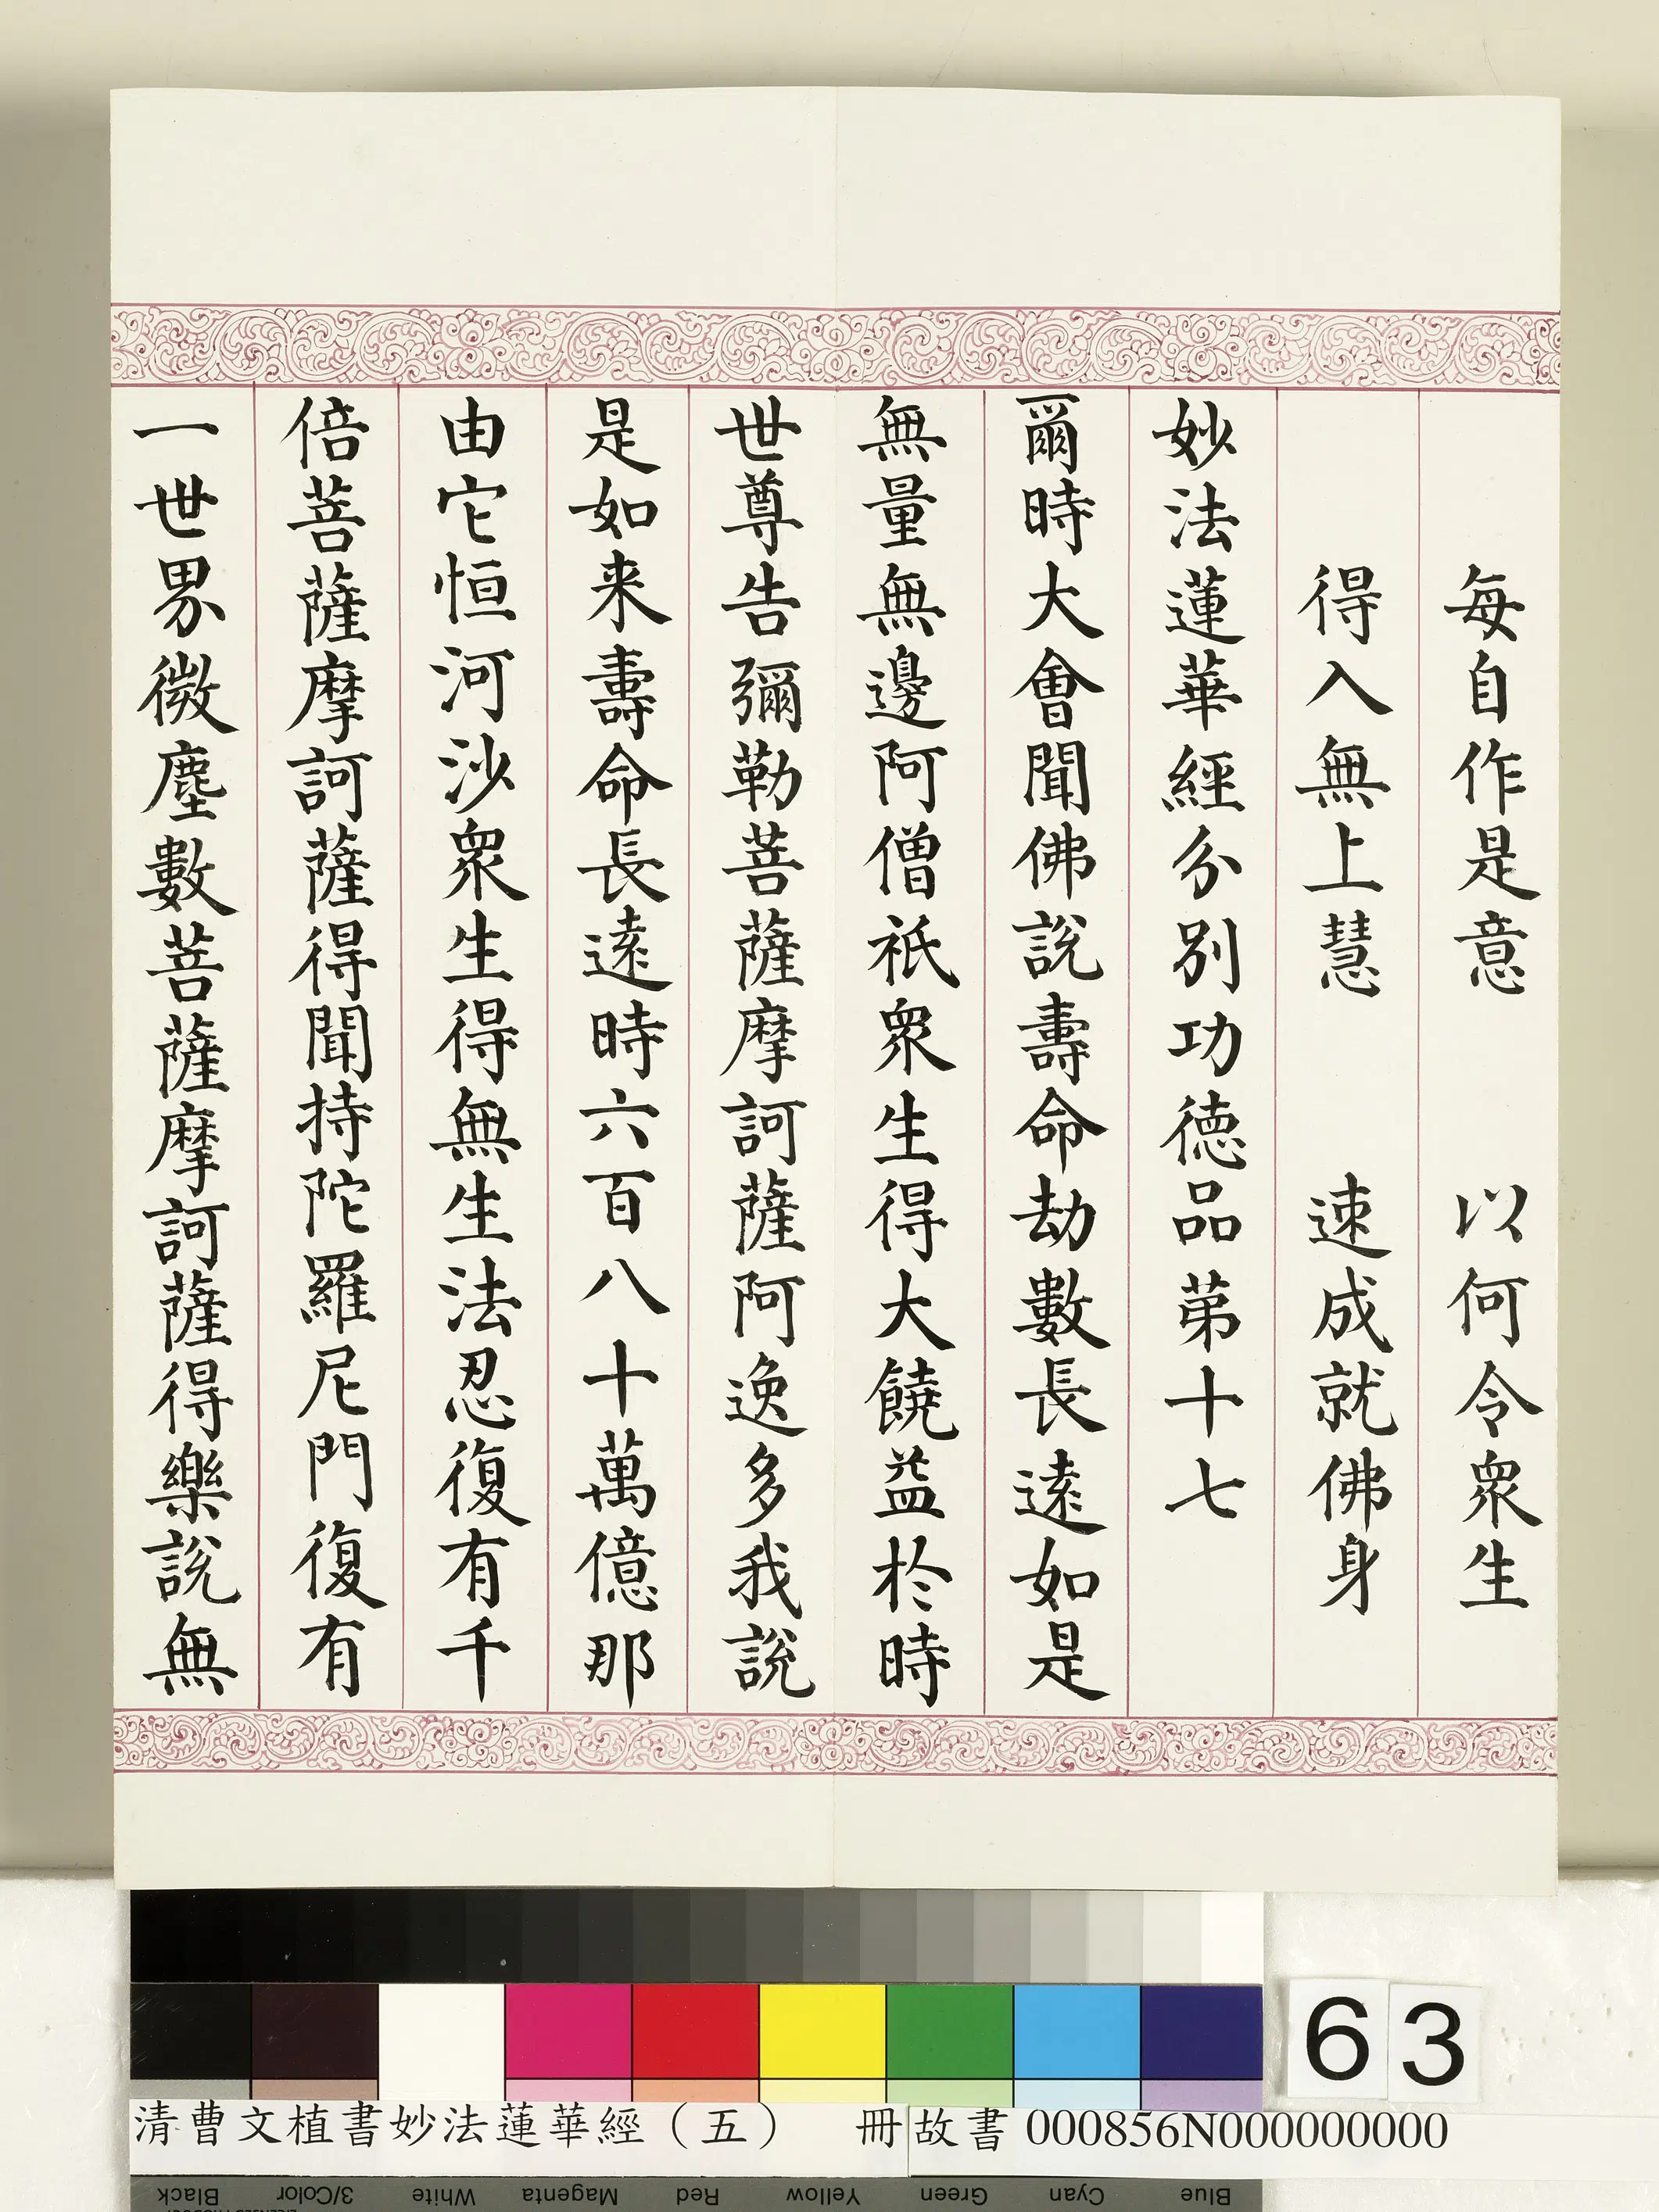 每自作是意　以何令衆生
得入無上慧　速成就佛身
妙法蓮華經分別功德品第十七
爾時大會聞佛說壽命劫數長遠如是
無量無邊阿僧祇衆生得大饒益於時
世尊告彌勒菩薩摩訶薩阿逸多我說
是如来壽命長遠時六百八十萬億那
由它恒河沙衆生得無生法忍復有千
倍菩薩摩訶薩得聞持陀羅尼門復有
一世界微塵數菩薩摩訶薩得樂說無
63
清曹文植書妙法蓮華經（五）　冊故書 000856N000000000
Black 3/Color White Magenta Red Yellow Green Cyan Blue